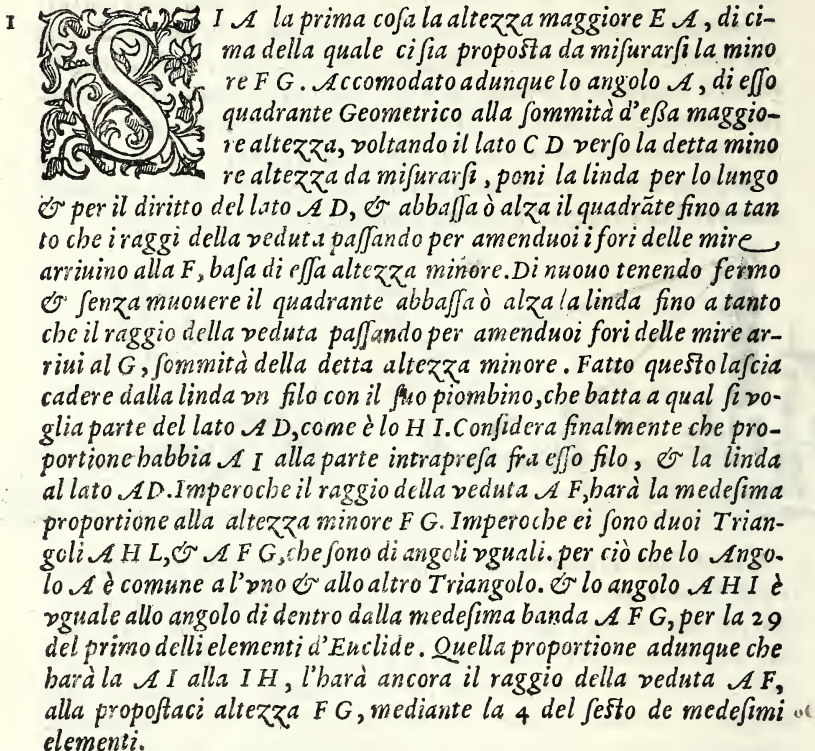 1 SIA la prima coſa la altezza maggiore E A, di ci-
ma della quale ci ſia propoſta da miſurarſi la mino
re F G. Accomodato adunque lo angolo A, di eſſo
quadrante Geometrico alla ſommità d'eßa maggio-
re altezza, voltando il lato C D verſo la detta mino
re altezza da miſurarſi, poni la linda per lo lungo
& per il diritto del lato A D, & abbaſſa ò alza il quadrāte fino a tan
to che i raggi della veduta paſſando per amenduoi i fori delle mire
arriuino alla F, baſa di eſſa altezza minore. Di nuouo tenendo fermo
& ſenza muouere il quadrante abbaſſa ò alza la linda fino a tanto
che il raggio della veduta paſſando per amenduoi fori delle mire ar-
riui al G, ſommità della detta altezza minore. Fatto queſto laſcia
cadere dalla linda vn filo con il ſuo piombino, che batta a qual ſi vo-
glia parte del lato A D, come è lo H I. Conſidera finalmente che pro-
portione habbia A I alla parte intrapreſa fra eſſo filo, & la linda
al lato A D. Imperoche il raggio della veduta A F, harà la medeſima
proportione alla altezza minore F G. Imperoche ei ſono duoi Trian-
goli A H L, & A F G, che ſono di angoli vguali. per ciò che lo Ango-
lo A è comune a l'vno & allo altro Triangolo. & lo angolo A H I è
vguale allo angolo di dentro dalla medeſima banda A F G, per la 29
del primo delli elementi d'Euclide. Quella proportione adunque che
harà la A I alla I H, l'harà ancora il raggio della veduta A F,
alla propoſtaci altezza F G, mediante la 4 del ſeſto de medeſimi
elementi.